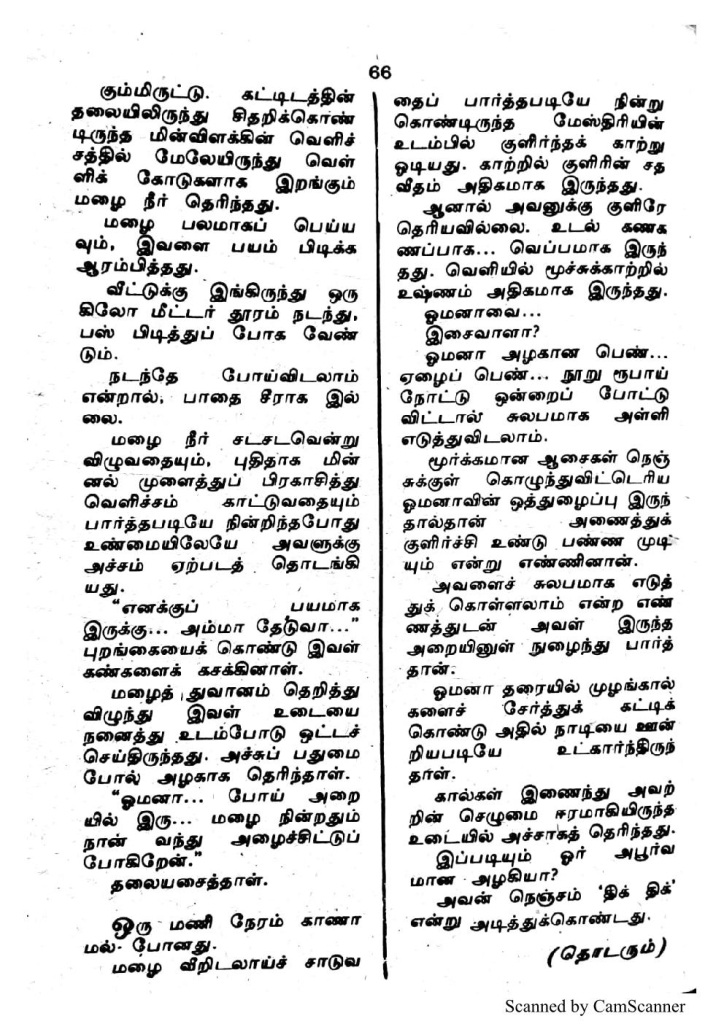 66
கும்மிருட்டு. கட்டிடத்தின்
தலையிலிருந்து சிதறிக்கொண்
டிருந்த மின்விளக்கின் வெளிச்
சத்தில் மேலேயிருந்து வெள்
ளிக் கோடுகளாக இறங்கும்
மழை நீர் தெரிந்தது.
மழை பலமாகப் பெய்ய
வும், இவளை பயம் பிடிக்க
ஆரம்பித்தது.
வீட்டுக்கு இங்கிருந்து ஒரு
கிலோ மீட்டர் தூரம் நடந்து,
பஸ் பிடித்துப் போக வேண்
டும்.
நடந்தே போய்விடலாம்
என்றால், பாதை சீராக இல்
லை.
மழை நீர் சடசடவென்று
விழுவதையும், புதிதாக மின்
னல் முளைத்துப் பிரகாசித்து
வெளிச்சம் காட்டுவதையும்
பார்த்தபடியே நின்றிந்தபோது
உண்மையிலேயே அவளுக்கு
அச்சம் ஏற்படத் தொடங்கி
யது.
“எனக்குப் பயமாக
இருக்கு... அம்மா தேடுவா...”
புறங்கையைக் கொண்டு இவள்
கண்களைக் கசக்கினாள்.
மழைத் துவானம் தெறித்து
விழுந்து இவள் உடையை
நனைத்து உடம்போடு ஒட்டச்
செய்திருந்தது. அச்சுப் பதுமை
போல் அழகாக தெரிந்தாள்.
“ஓமனா... போய் அறை
யில் இரு... மழை நின்றதும்
நான் வந்து அழைச்சிட்டுப்
போகிறேன்.”
தலையசைத்தாள்.
ஒரு மணி நேரம் காணா
மல் போனது.
மழை வீறிடலாய்ச் சாடுவ
தைப் பார்த்தபடியே நின்று
கொண்டிருந்த மேஸ்திரியின்
உடம்பில் குளிர்ந்தக் காற்று
ஓடியது. காற்றில் குளிரின் சத
வீதம் அதிகமாக இருந்தது.
ஆனால் அவனுக்கு குளிரே
தெரியவில்லை. உடல் கணக
ணப்பாக... வெப்பமாக இருந்
தது. வெளியில் மூச்சுக்காற்றில்
உஷ்ணம் அதிகமாக இருந்தது.
ஓமனாவை...
இசைவாளா?
ஓமனா அழகான பெண்...
ஏழைப் பெண்... நூறு ரூபாய்
நோட்டு ஒன்றைப் போட்டு
விட்டால் சுலபமாக அள்ளி
எடுத்துவிடலாம்.
மூர்க்கமான ஆசைகள் நெஞ்
சுக்குள் கொழுந்துவிட்டெரிய
ஓமனாவின் ஒத்துழைப்பு இருந்
தால்தான் அணைத்துக்
குளிர்ச்சி உண்டு பண்ண முடி
யும் என்று எண்ணினான்.
அவளைச் சுலபமாக எடுத்
துக் கொள்ளலாம் என்ற எண்
ணத்துடன் அவள் இருந்த
அறையினுள் நுழைந்து பார்த்
தான்.
ஓமனா தரையில் முழங்கால்
களைச் சேர்த்துக் கட்டிக்
கொண்டு அதில் நாடியை ஊன்
றியபடியே உட்கார்ந்திருந்
தாள்.
கால்கள் இணைந்து அவற்
றின் செழுமை ஈரமாகியிருந்த
உடையில் அச்சாகத் தெரிந்தது.
இப்படியும் ஓர் அபூர்வ
மான அழகியா?
அவன் நெஞ்சம் ‘திக் திக்’
என்று அடித்துக்கொண்டது.
(தொடரும்)
Scanned by CamScanner